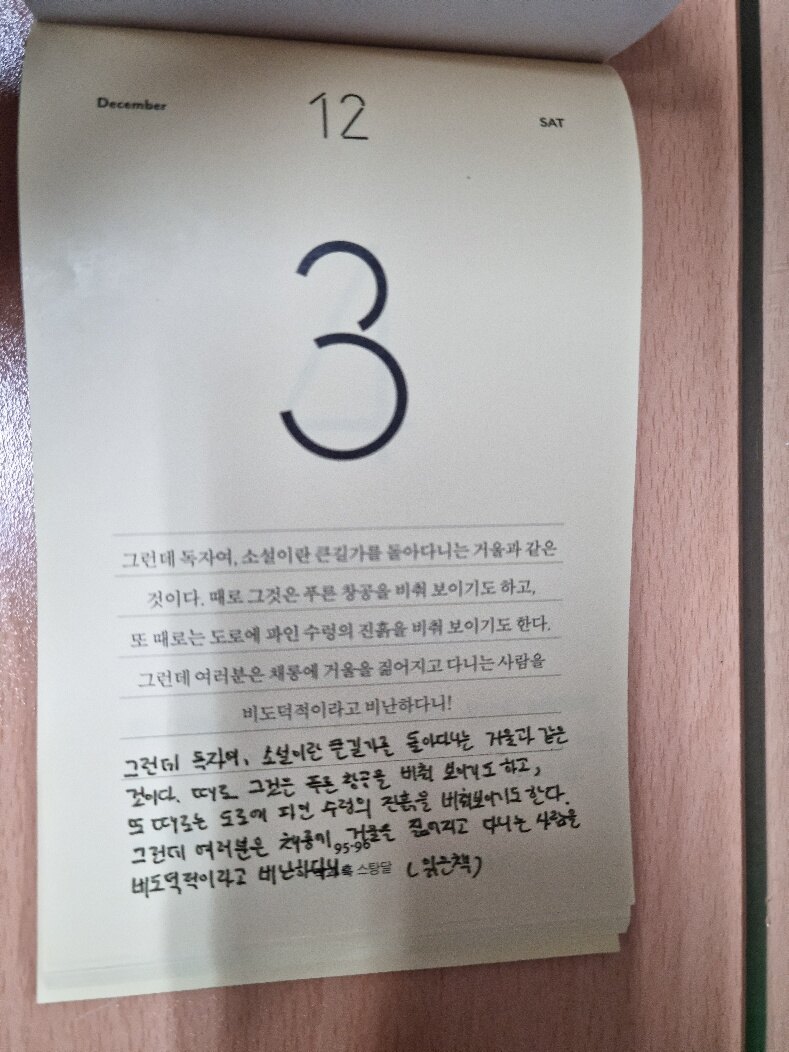 December
12
SAT
3
그런데 독자여, 소설이란 큰길가를 돌아다니는 거울과 같은
것이다. 때로 그것은 푸른 창공을 비춰 보이기도 하고,
또 때로는 도로에 파인 수렁의 진흙을 비춰 보이기도 한다.
그런데 여러분은 채롱에 거울을 짊어지고 다니는 사람을
비도덕적이라고 비난하다니!
그런데 독자여, 소설이란 큰길가를 돌아다니는 거울과 같은
것이다. 때로 그것은 푸른 창공을 비춰 보이기도 하고,
또 때로는 도로에 파인 수렁의 진흙을 비춰보이기도 한다.
그런데 여러분은 채롱에 거울을 짊어지고 다니는 사람을
95-96
비도덕적이라고 비난하다니 스탕달 (읽은책)